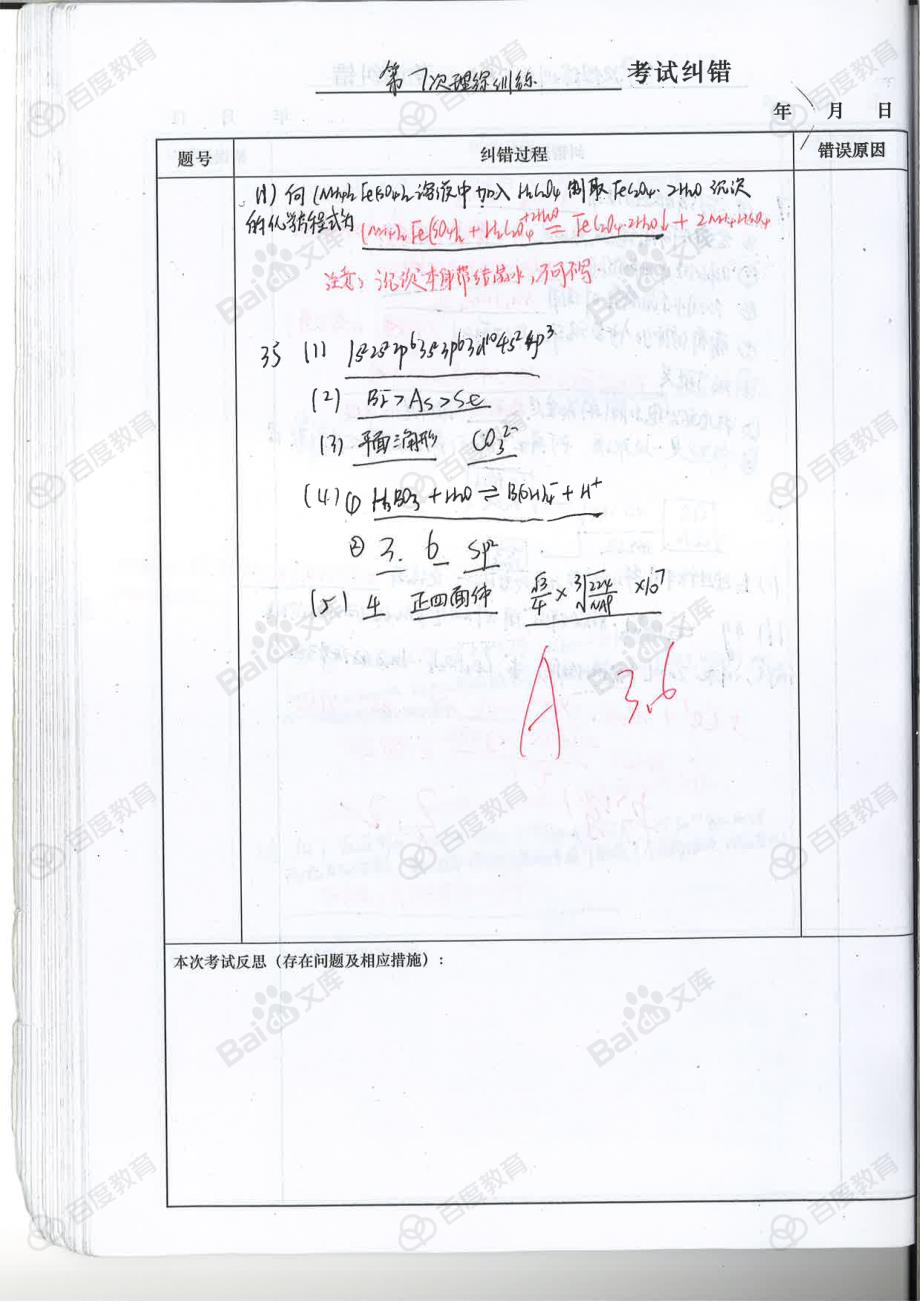 第7次理综训练 考试纠错
年 月 日
题号 纠错过程 错误原因
(1) 向(NH₄)₂Fe(SO₄)₂溶液中加入H₂C₂O₄制取FeC₂O₄·2H₂O沉淀
的化学方程式为 (NH₄)₂Fe(SO₄)₂ + H₂C₂O₄ +2H₂O = FeC₂O₄·2H₂O↓ + 2NH₄HSO₄
注意：沉淀本身带结晶水，不可不写
35 (1) 1s²2s²2p⁶3s²3p⁶3d¹⁰4s²4p³
(2) Br>As>Se
(3) 平面三角形 CO₃²⁻
(4) ① H₃BO₃ + H₂O ⇌ B(OH)₄⁻ + H⁺
② 3. 6 sp²
(5) 4 正四面体 √3/4 × ³√(224/NAρ) ×10⁷
A 3.6
本次考试反思（存在问题及相应措施）：
Baidu文库
百度教育